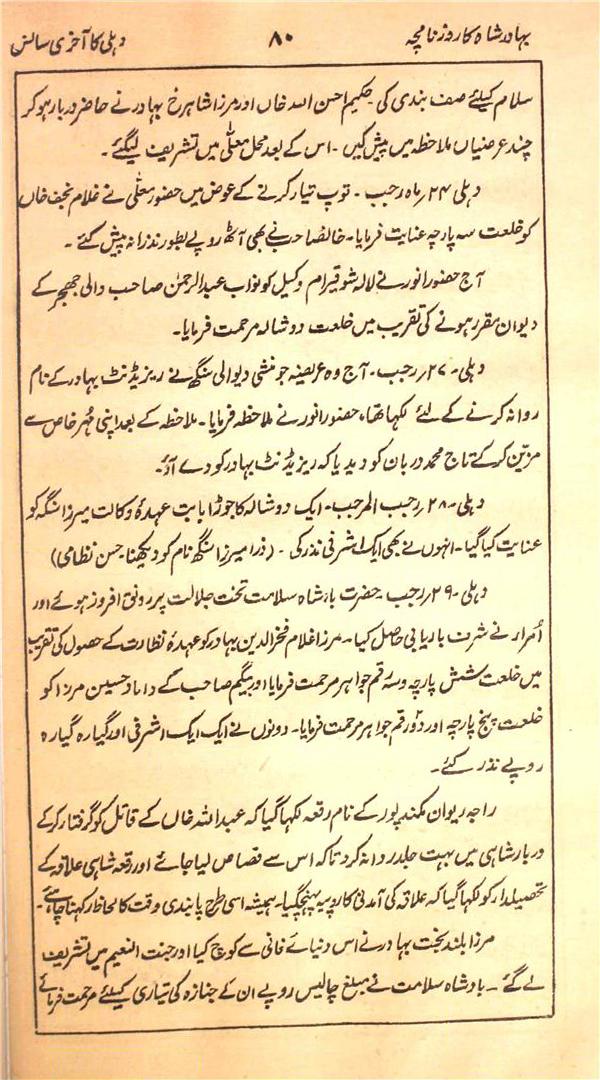 بہادر شاہ کا روزنامچہ ۸۰ دہلی کا آخری سانس
سلام کیلئے صف بندی کی حکیم احسن اللہ خاں اور مرزا شاہرخ بہادر نے حاضر دربار ہو کر
چند عرضیاں ملاحظہ میں پیش کیں ۔ اس کے بعد محل معلّٰی میں تشریف لیگئے ۔
دہلی ۲۴؍ ماہ رجب ۔ توپ تیار کرنے کے عوض میں حضور معلّٰی نے غلام نجف خاں
کو خلعت سہ پارچہ عنایت فرمایا ۔ خانصاحب نے بھی آٹھ روپے بطور نذرانہ پیش کئے ۔
آج حضور انور نے لالہ شوقیرام وکیل کو نواب عبدالرحمٰن صاحب والی جھجر کے
دیوان مقرر ہونے کی تقریب میں خلعت دوشالہ مرحمت فرمایا ۔
دہلی ۔ ۲۷؍ رجب ۔ آج وہ عریضہ جو منشی دیوالی سنگھ نے ریزیڈنٹ بہادر کے نام
روانہ کرنے کے لئے لکہا تھا، حضور انور نے ملاحظہ فرمایا ۔ ملاحظہ کے بعد اپنی مُہر خاص سے
مزیّن کر کے تاج محمد دربان کو دیدیا کہ ریزیڈنٹ بہادر کو دے آؤ ۔
دہلی ۔ ۲۸؍ رجب المرجب ۔ ایک دوشالہ کا جوڑا بابت عہدۂ وکالت میرزا سنگہ کو
عنایت کیا گیا ۔ انہوں نے بھی ایک اشرفی نذر کی ۔ (ذرا میرزا سنگھ نام کو دیکھنا ۔ حسن نظامی)
دہلی ۔ ۲۹؍ رجب ۔ حضرت بادشاہ سلامت تخت جلالت پر رونق افروز ہوئے اور
اُمراء نے شرف باریابی حاصل کیا ۔ مرزا غلام فخرالدین بہادر کو عہدۂ نظارت کے حصول کی تقریب
میں خلعت شش پارچہ وسہ رقم جواہر مرحمت فرمایا اور بیگم صاحب کے داماد حسین مرزا کو
خلعت پنج پارچہ اور دو رقم جواہر مرحمت فرمایا ۔ دونوں نے ایک ایک اشرفی اور گیارہ گیارہ
روپے نذر کئے ۔
راجہ ریوان مکندپور کے نام رقعہ لکہا گیا کہ عبداللہ خاں کے قاتل کو گرفتار کر کے
دربار شاہی میں بہت جلد روانہ کر دو تاکہ اس سے قصاص لیا جائے اور رقعہ شاہی علاقہ کے
تحصیلدار کو لکہا گیا کہ علاقہ کی آمدنی کا روپیہ پہنچ گیا ۔ ہمیشہ اسی طرح پابندی وقت کا لحاظ رکہنا چاہئے ۔
مرزا بلند بخت بہادر نے اس دنیائے فانی سے کوچ کیا اور جنت النعیم میں تشریف
لے گئے ۔ بادشاہ سلامت نے مبلغ چالیس روپے ان کے جنازہ کی تیاری کیلئے مرحمت فرمائے